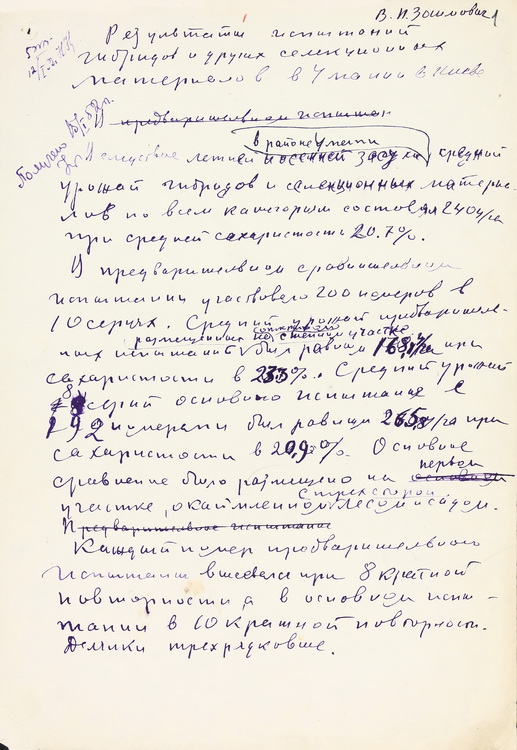 В. П. Зосимович 1
Результаты испытаний
гибридов и других селекционных
материалов в Умани и Киеве
Получено 15/II 58 г.
предварительном испытан
в районе Умани
Вследствие летней и осенней засухи, средний
урожай гибридов и селекционных материа-
лов по всем категориям составил 240 ц/га
при средней сахаристости 20.7%.
В предварительном сравнительном
испытании участвовало 200 номеров в
10 сериях. Средний урожай предваритель-
размещенных на степном участке
ных испытаний был равным 168, ц/га при
сахаристости в 23.3%. Средний урожай
8 серий основного испытание с
192 номерами был равным 265, ц/га при
сахаристости в 20,9%. Основное
первом
сравнение было размещено на основном
с трех сторон
участке, окаймленном лесом и садом.
Предварительное испытание
Каждый номер предварительного
испытания высевался при 8 кратной
повторности, а в основном испы-
тании в 10 кратной повторности.
Делянки трехрядковые.